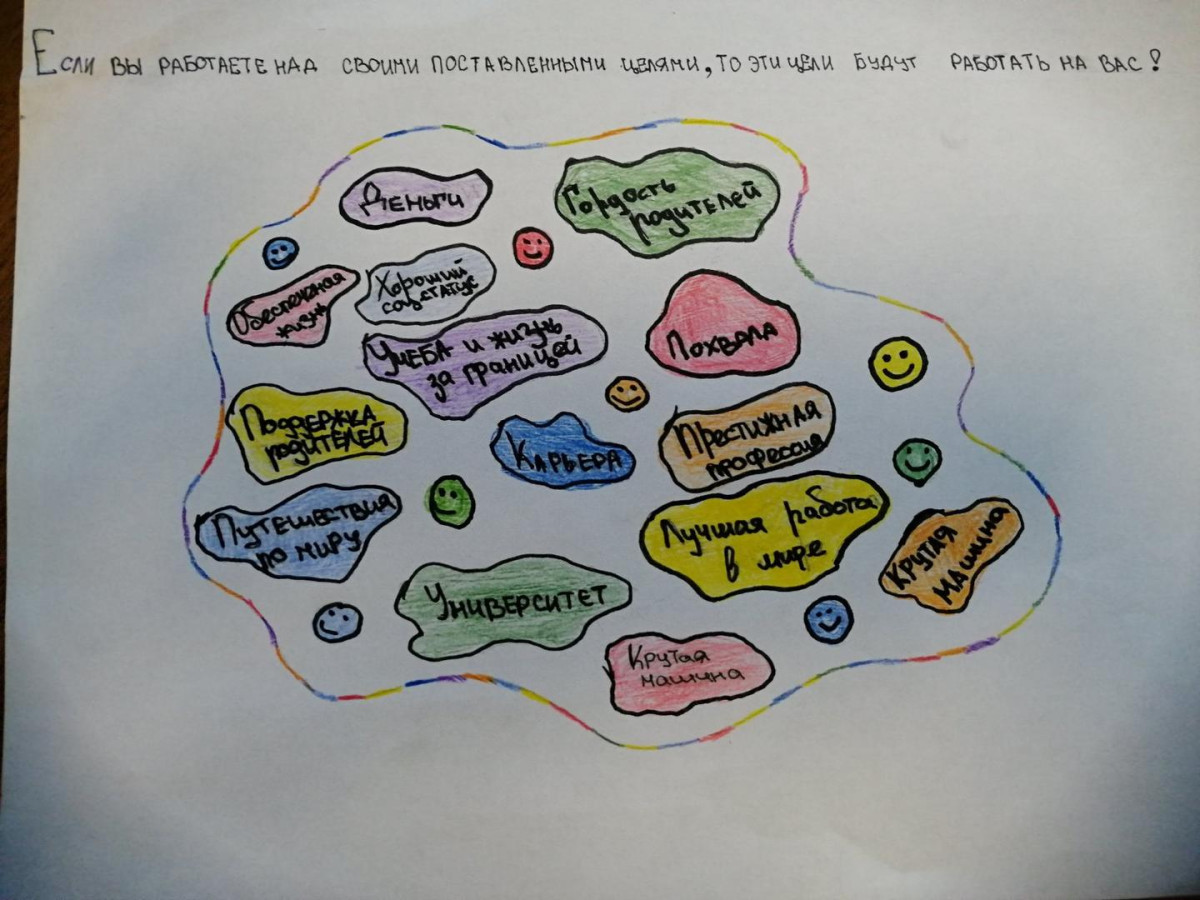 Если вы работаете над своими поставленными целями, то эти цели будут работать на вас!
Деньги
Гордость
родителей
Обеспеченная
жизнь
Хороший
соц.статус
Учеба и жизнь
за границей
Похвала
Поддержка
родителей
Карьера
Престижная
профессия
Путешествия
по миру
Лучшая работа
в мире
Крутая
машина
Университет
Крутая
машина